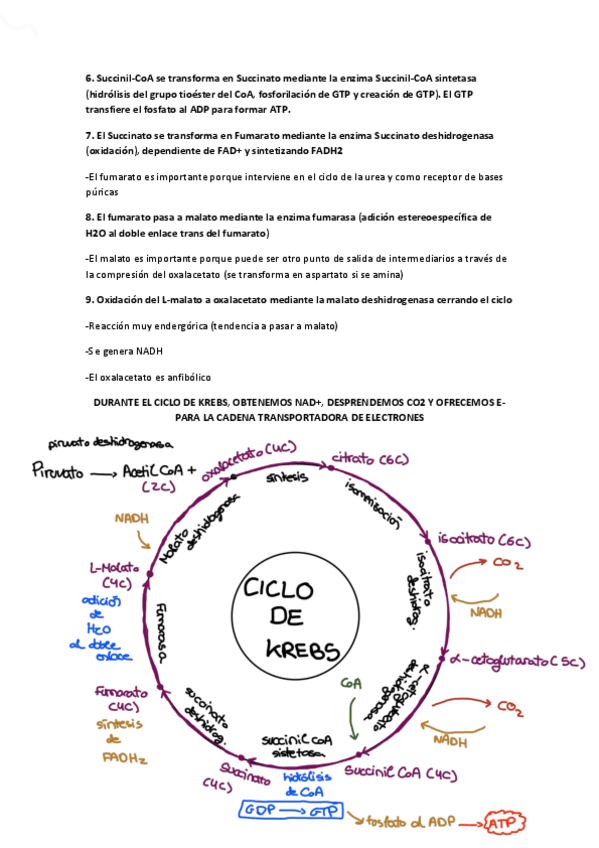 6. Succinil-CoA se transforma en Succinato mediante la enzima Succinil-CoA sintetasa
(hidrólisis del grupo tioéster del CoA, fosforilación de GTP y creación de GTP). El GTP
transfiere el fosfato al ADP para formar ATP.
7. El Succinato se transforma en Fumarato mediante la enzima Succinato deshidrogenasa
(oxidación), dependiente de FAD+ y sintetizando FADH2
-El fumarato es importante porque interviene en el ciclo de la urea y como receptor de bases
púricas
8. El fumarato pasa a malato mediante la enzima fumarasa (adición estereoespecífica de
H2O al doble enlace trans del fumarato)
-El malato es importante porque puede ser otro punto de salida de intermediarios a través de
la compresión del oxalacetato (se transforma en aspartato si se amina)
9. Oxidación del L-malato a oxalacetato mediante la malato deshidrogenasa cerrando el ciclo
-Reacción muy endergórica (tendencia a pasar a malato)
-Se genera NADH
-El oxalacetato es anfibólico
DURANTE EL CICLO DE KREBS, OBTENEMOS NAD+, DESPRENDEMOS CO2 Y OFRECEMOS E-
PARA LA CADENA TRANSPORTADORA DE ELECTRONES
piruvato deshidrogenasa
Piruvato → Acetil CoA +
(2C)
oxalacetato (4C)
síntesis
citrato (6C)
isomerización
isocitrato (6C)
isocitrato
deshidrog.
CO2
NADH
α-cetoglutarato (5C)
α-cetoglutarato
deshidrogenasa
CO2
NADH
CoA
Succinil CoA (4C)
succinil CoA
sistetasa
hidrólisis
de CoA
GDP → GTP
fosfato al ADP → ATP
Succinato
(4C)
succinato
deshidrog.
Fumarato
(4C)
síntesis
de
FADH2
Fumarasa
L-Malato
(4C)
adición
de
H2O
al doble
enlace
NADH
Malato
deshidrogenasa
CICLO
DE
KREBS